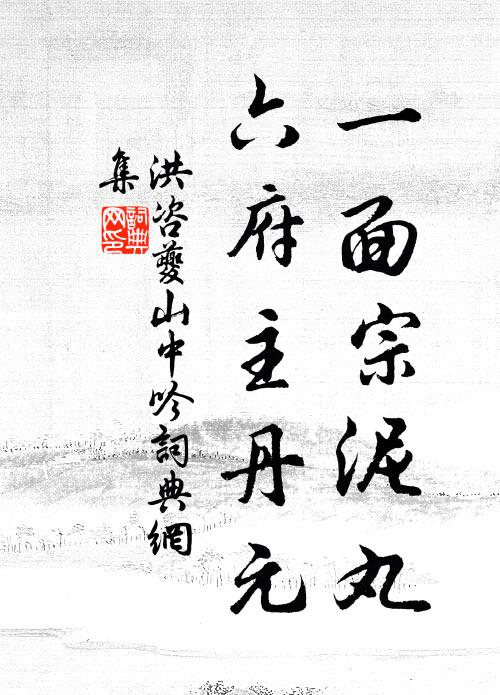 一面宗泥丸
六府主丹元
洪咨夔山中吟詞典網
集
詞典
网印